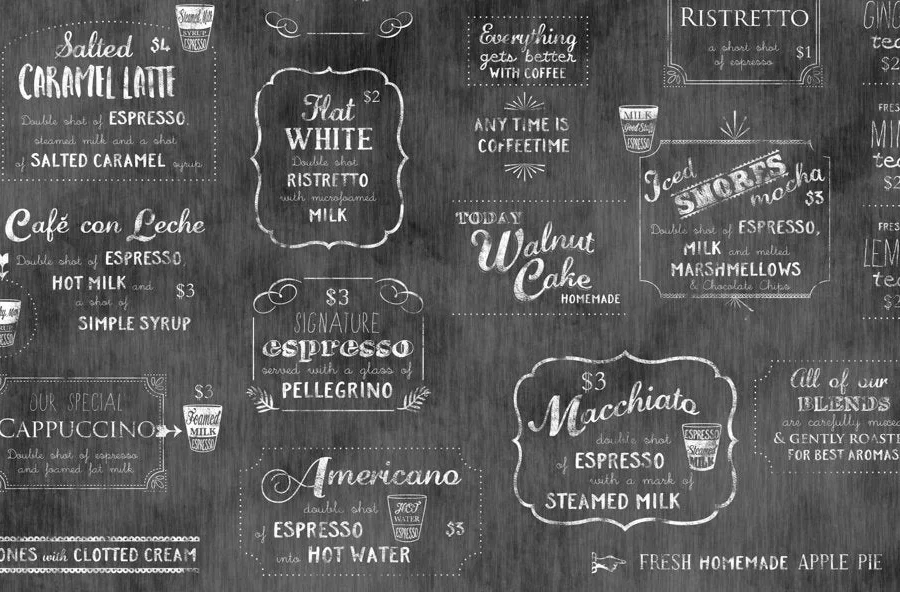 Steamed Milk
SYRUP
ESPRESSO
Salted $4
CARAMEL LATTE
Double shot of ESPRESSO,
steamed milk and a shot
of SALTED CARAMEL syrup
Café con Leche
Double shot of ESPRESSO,
HOT MILK and
a shot of
SIMPLE SYRUP
$3
OUR SPECIAL
CAPPUCCINO
Double shot of espresso
and foamed fat milk
$3
Foamed
MILK
ESPRESSO
ONES with CLOTTED CREAM
Flat $2
WHITE
Double shot
RISTRETTO
with microfoamed
MILK
$3
SIGNATURE
espresso
served with a glass of
PELLEGRINO
Americano
double shot
of ESPRESSO
into HOT WATER
HOT
WATER
ESPRESSO
$3
Everything
gets better
WITH COFFEE
ANY TIME IS
COFFEETIME
TODAY
Walnut
Cake
HOMEMADE
RISTRETTO
a short shot
of espresso
$1
MILK
Good Stuff
ESPRESSO
Iced
SMORES
mocha
$3
Double shot of ESPRESSO,
MILK and melted
MARSHMELLOWS
& Chocolate Chips
$3
Macchiato
double shot
of ESPRESSO
with a mark of
STEAMED MILK
ESPRESSO
Steamed
MILK
FRESH HOMEMADE APPLE PIE
GING
tea
$2
FRES
MIN
tea
$2
FRES
LEM
tea
$2
All of our
BLENDS
are carefully mixed
& GENTLY ROASTE
FOR BEST AROMAS